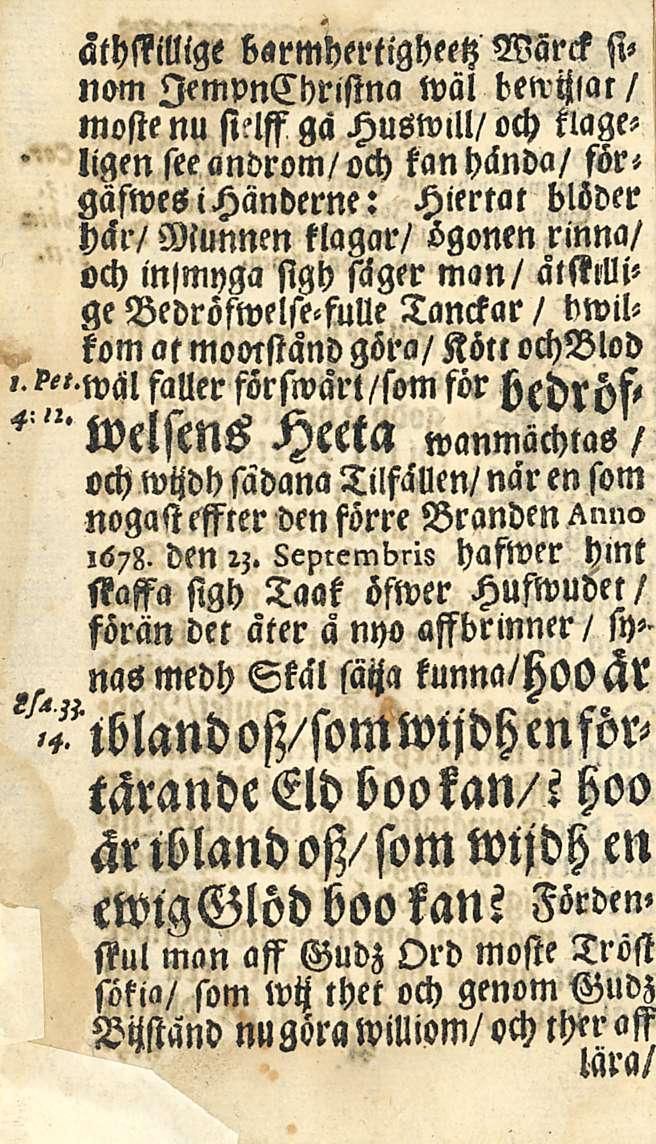 åthskillige barmhertigheetz Wärck si-
nom JempnChristna wäl bewijsat /
moste nu sielff gå Huswill/ och klage-
ligen see androm/ och kan hända/ för-
gäfwes i Händerne: Hiertat blöder
här/ Munnen klagar/ ögonen rinna/
och insmyga sigh säger man / åtskilli-
ge Bedröfwelse-fulle Tanckar / hwil-
kom at mootstånd göra/ Kött och Blod
1. Pet. wäl faller för swårt /som för bedröf-
4: 12. welsens Heeta wanmächtas /
och wijdh sådana Tilfällen/ när en som
nogast effter den förre Branden Anno
1678. den 23. Septembris hafwer hint
skaffa sigh Taak öfwer Hufwudet /
förän det åter å nyo affbrinner / sy-
nas medh Skäl säija kunna/ hoo är
Esa. 33. 14. ibland oß/ som wijdh en för-
tärande Eld boo kan/? hoo
är ibland oß/ som wijdh en
ewig Glöd boo kan? Förden-
skul man aff Gudz Ord moste Tröst
sökia/ som wij thet och genom Gudz
Bijstånd nu göra williom/ och ther aff
lära/